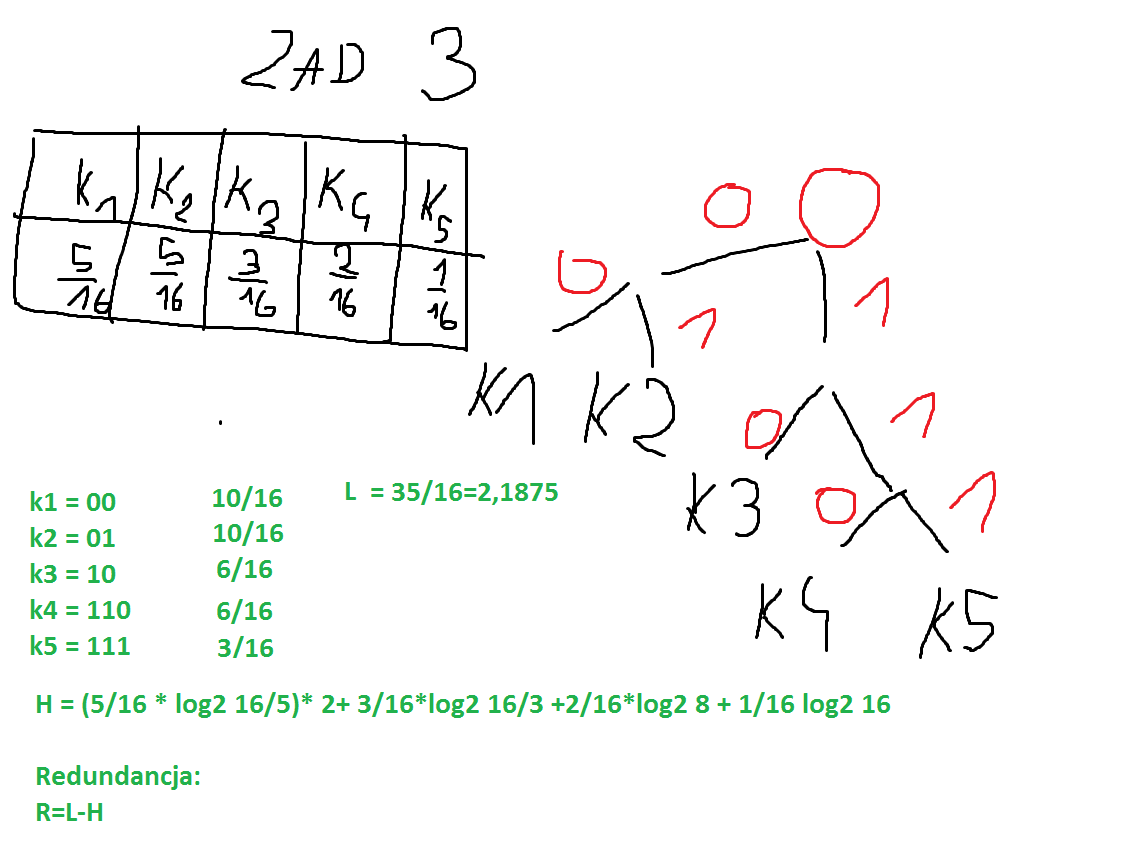 ZAD 3
K1 K2 K3 K4 K5
5/16 5/16 3/16 2/16 1/16
0
0 1 1
K1 K2 0 1
K3 0 1
K4 K5
k1 = 00 10/16 L = 35/16=2,1875
k2 = 01 10/16
k3 = 10 6/16
k4 = 110 6/16
k5 = 111 3/16
H = (5/16 * log2 16/5)* 2+ 3/16*log2 16/3 +2/16*log2 8 + 1/16 log2 16
Redundancja:
R=L-H